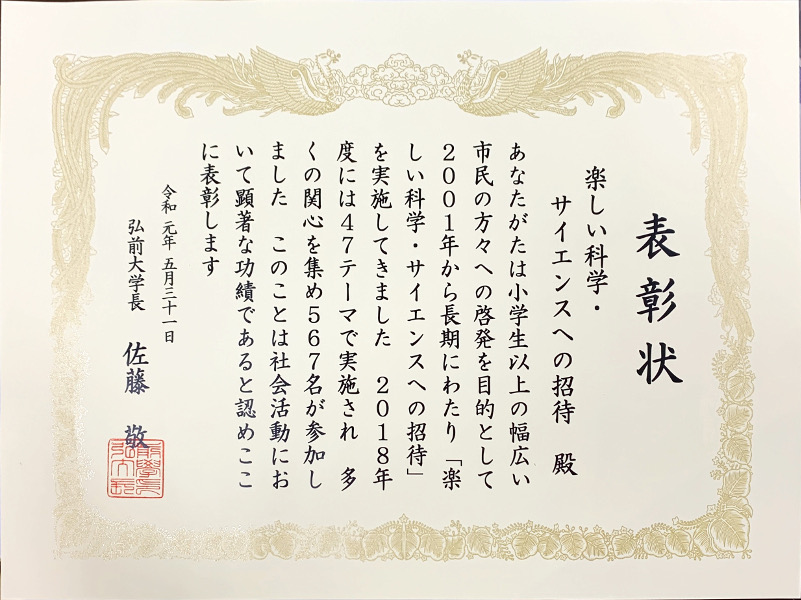 表彰状
楽しい科学・
サイエンスへの招待 殿
あなたがたは小学生以上の幅広い
市民の方々への啓発を目的として
2001年から長期にわたり「楽
しい科学・サイエンスへの招待」
を実施してきました 2018年
度には47テーマで実施され 多
くの関心を集め567名が参加し
ました このことは社会活動にお
いて顕著な功績であると認めここ
に表彰します
令和元年五月三十一日
弘前大学長 佐藤 敬